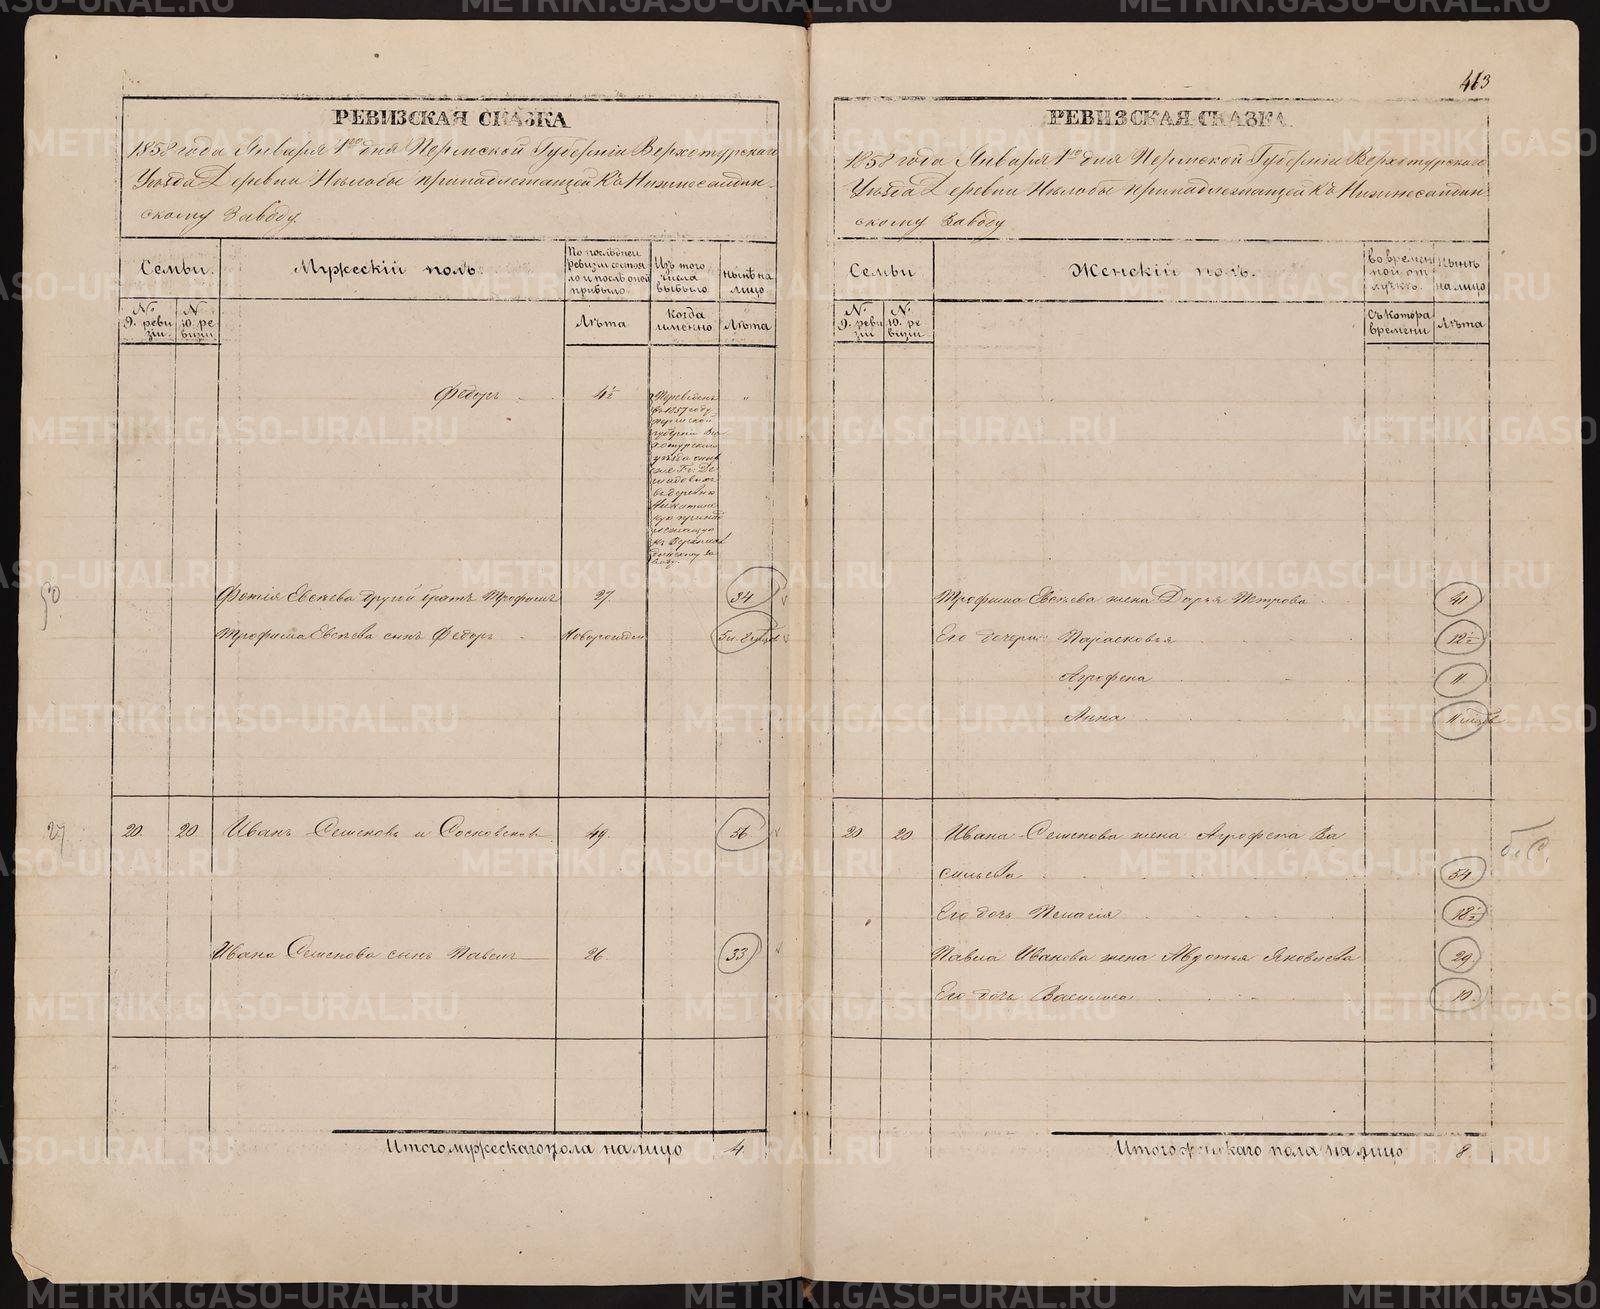 413
РЕВИЗСКАЯ СКАЗКА
1858 года Января 1го дня Пермской Губернiи Верхотурскаго
Уѣзда Деревни Нѣлобы принадлежащей къ Нижнесалдин-
скому Заводу.
Семьи.
Мужескiй полъ.
По послѣдней
ревизiи состоя
ло и послѣ оной
прибыло.
Изъ того
числа
выбыло.
Нынѣ на
лицо.
№
9. реви
зiи.
№
10. ре
визiи.
Лѣта
Когда
именно
Лѣта
Федоръ
4½
"
Переведенъ
въ 1857 году
Пермской
губернiи Вер
хотурскаго
уѣзда
Гг. Де
мидовыхъ
въ деревню
Никитин
скую принад
лежащую
къ Верхнесал
динскому За
воду.
50
Фотiя Евсѣева другой братъ Трофимъ
27.
34
Трофима Евсѣева сынъ Федоръ
Новорожден
27
20.
20.
Иванъ Семеновъ
49.
56
Ивана Семенова сынъ Павелъ
26.
33
Итого мужескаго пола на лицо
4
РЕВИЗСКАЯ СКАЗКА
1858 года Января 1го дня Пермской Губернiи Верхотурскаго
Уѣзда Деревни Нѣлобы принадлежащей къ Нижнесалдин
скому Заводу
Семьи
Женскiй полъ.
Во времен
ной от
лучкѣ.
Нынѣ
на лицо
№
9. реви
зiи
№
10. ре
визiи.
Съ котора
времени
Лѣта
Трофима Евсѣева жена Дарья Петрова
41
Его дочери Парасковья
12½
Агрофена
11
Анна
20
20.
Ивана Семенова жена Агрофена Ва
сильева
54
Его дочь Пелагiя
18½
Павла Иванова жена Авдотья Яковлева
29
Его дочь Василиса
10.
Итого женскаго пола на лицо
8
METRIKI.GASO-URAL.RU